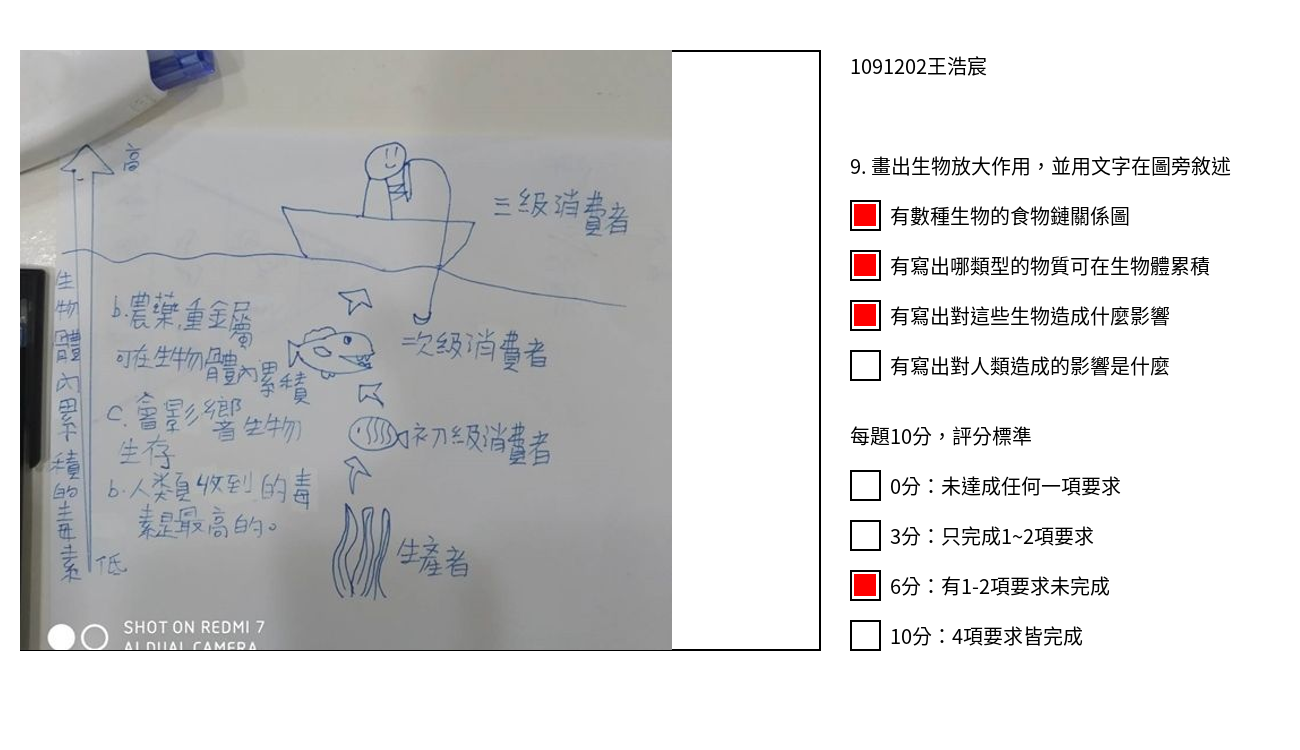 高
三級消費者
生物體內累積的毒素
b.農藥,重金屬
可在生物體內累積
二次級消費者
c.會影響生物
生存
初級消費者
b.人類收到的毒
素是最高的。
生產者
低
SHOT ON REDMI 7
AI DUAL CAMERA
1091202王浩宸
9. 畫出生物放大作用，並用文字在圖旁敘述
有數種生物的食物鏈關係圖
有寫出哪類型的物質可在生物體累積
有寫出對這些生物造成什麼影響
有寫出對人類造成的影響是什麼
每題10分，評分標準
0分：未達成任何一項要求
3分：只完成1~2項要求
6分：有1-2項要求未完成
10分：4項要求皆完成